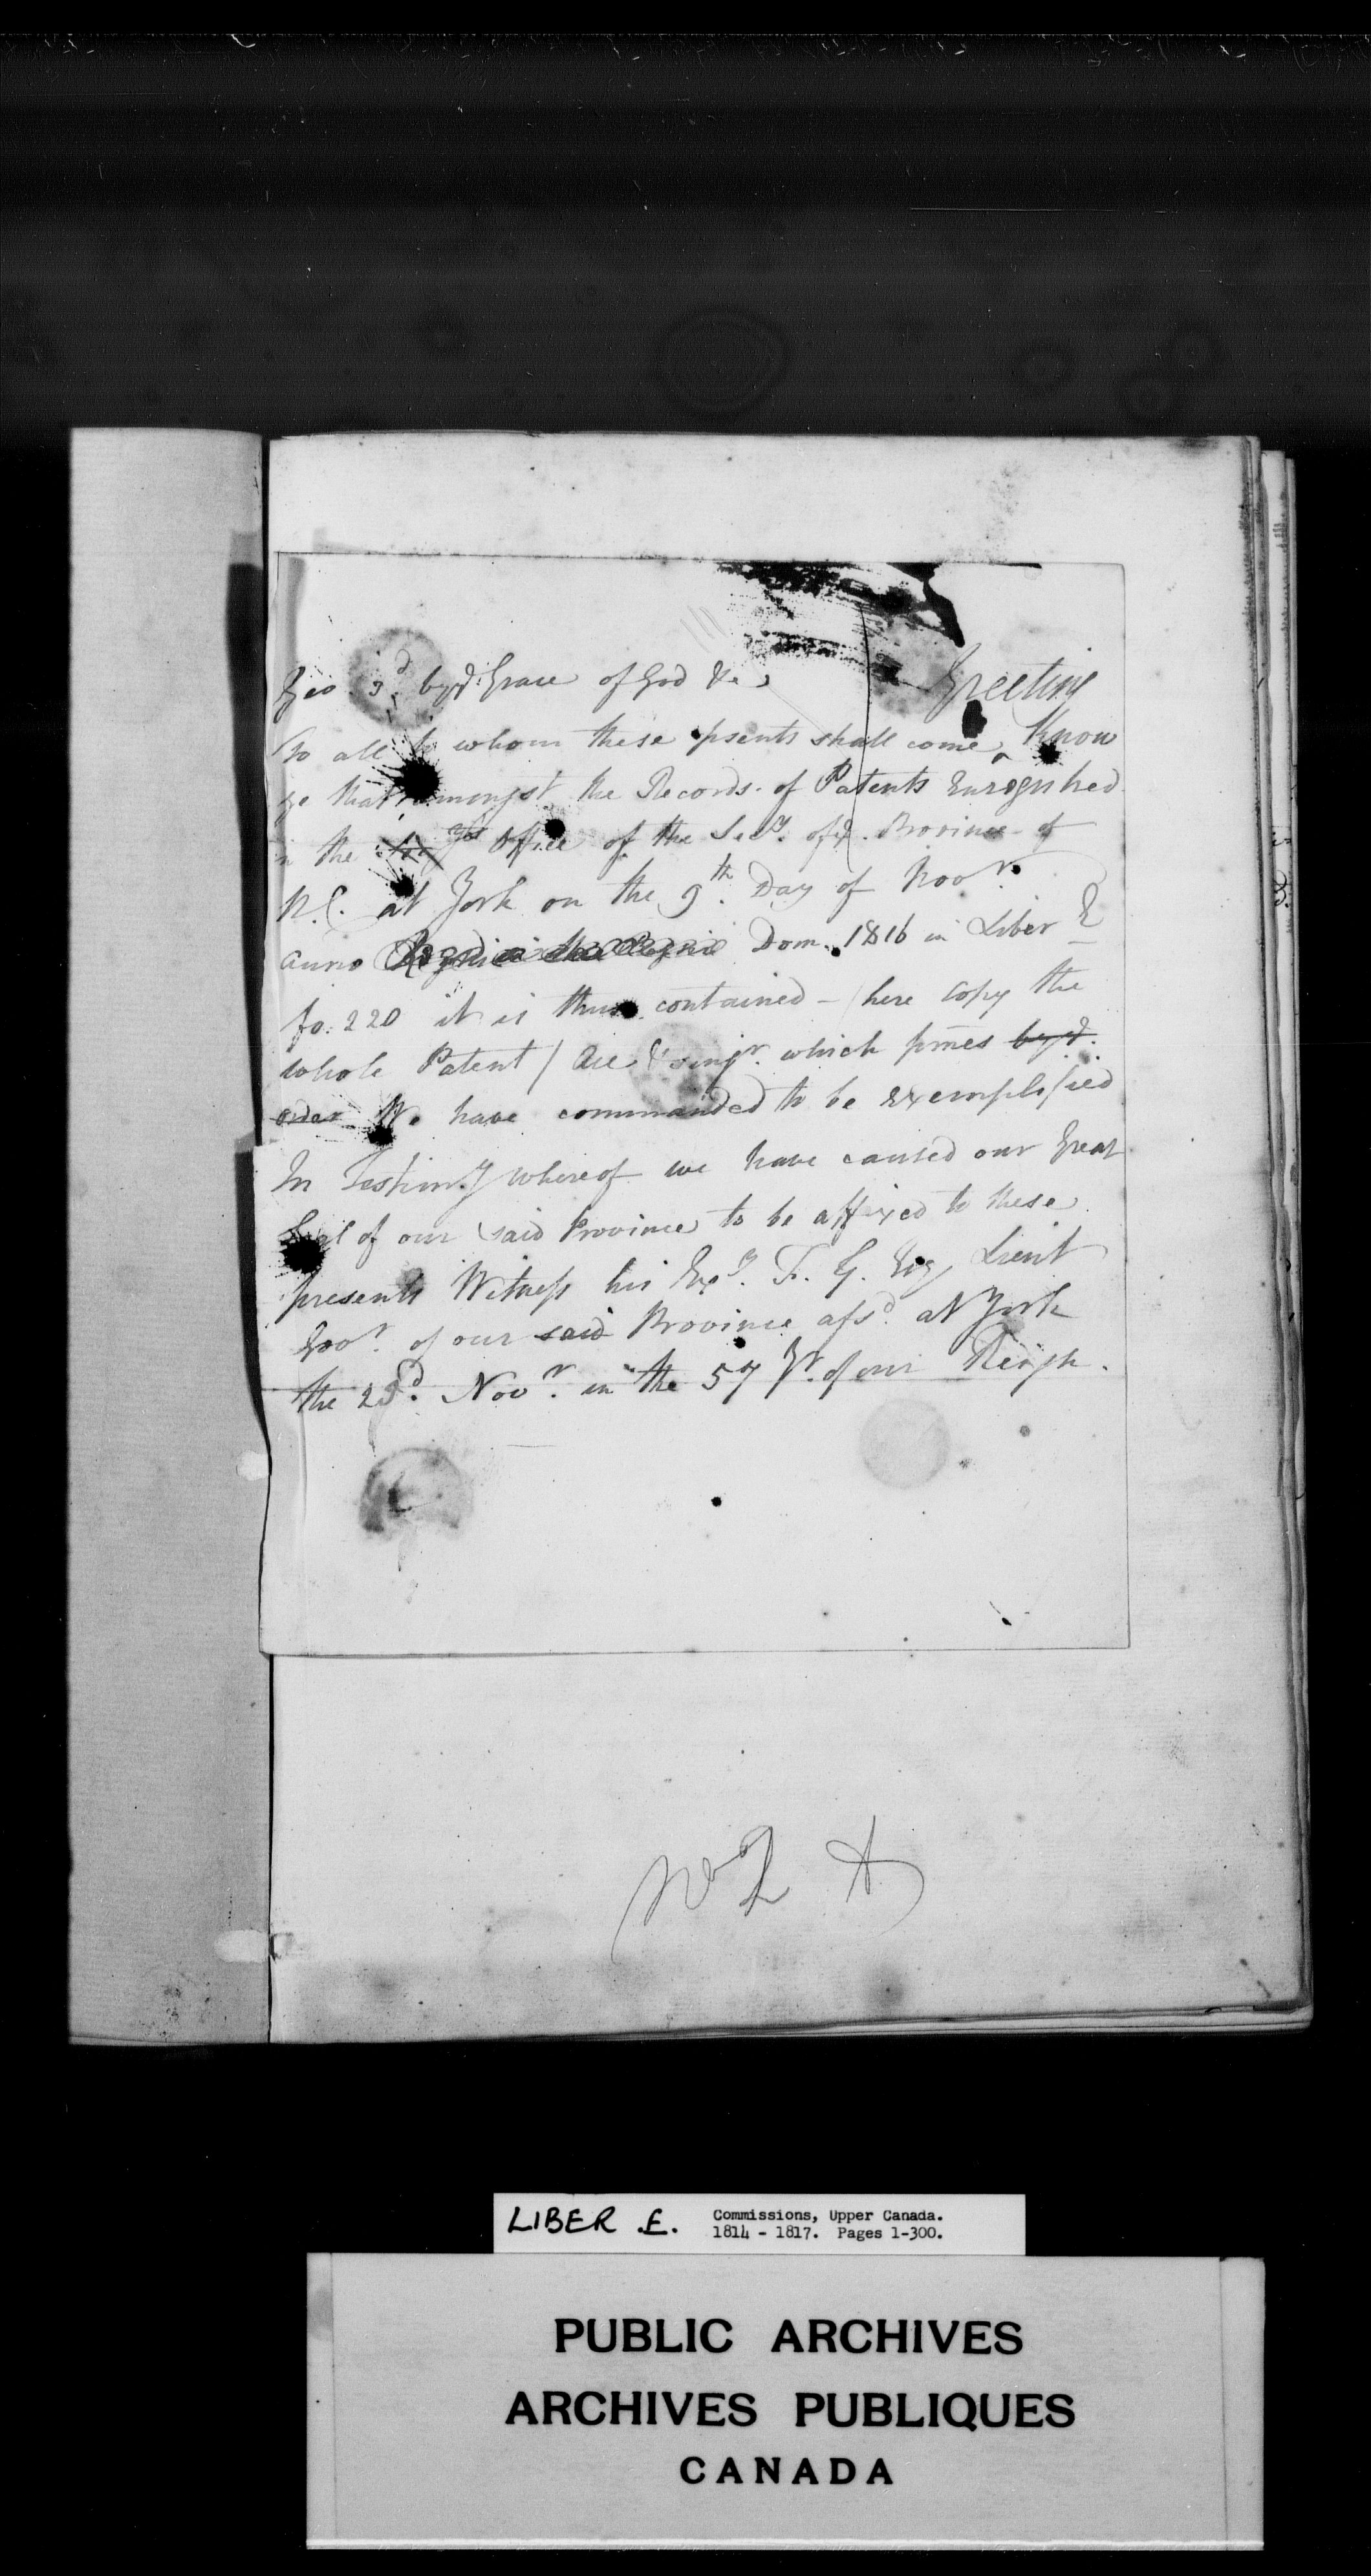 Geo. 3d. by ye. Grace of God &c
Greeting
To all to whom these psents shall come ^ Know
ye that amongst the Records of Patents Enregistred
in the Office of the Secy. of ye. Province of
U.C. at York on the 9th. Day of Novr.
anno Dom. 1816 in Liber E
fo. 220 it is thus contained - / here copy the
whole Patent / All & singr. which pmes by ye.
order We have commanded to be exemplified
In Testimy whereof we have caused our Great
Seal of our said Province to be affixed to these
presents Witness his Exy. F. G. Esq Lieut
Govr. of our said Province afsd. at York
the 23d. Novr. in the 57 Yr. of our Reign.
No 2 A
LIBER .E. Commissions, Upper Canada.
1814 - 1817. Pages 1-300.
PUBLIC ARCHIVES
ARCHIVES PUBLIQUES
CANADA